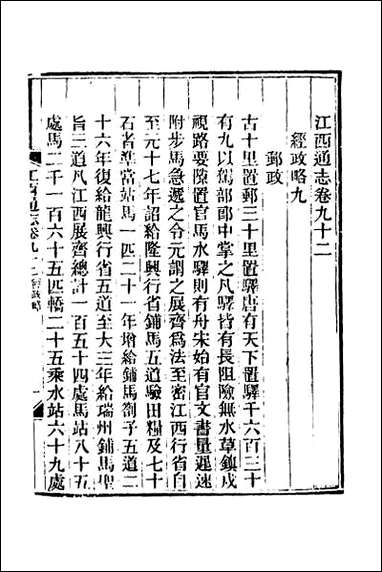 江西通志卷九十二
經政略九
郵政
古十里置郵三十里置驛唐有天下置驛千六百三十
有九以駕部郎中掌之凡驛皆有長阻險無水草鎮戍
視路要隙置官馬水驛則有舟宋始有官文書量遲速
附步馬急遞之令元謂之展齊爲法至密江西行省自
至元十七年詔給隆興行省鋪馬五道驗田糧及七十
石者準當站馬一匹二十一年增給鋪馬劄子五道二
十六年復給龍興行省五道至大三年給瑞州鋪馬聖
旨三道凡江西展齊總計一百五十四處馬站八十五
處馬二千一百六十五匹轎二十五乘水站六十九處
江西通志卷九十二 經政略 一